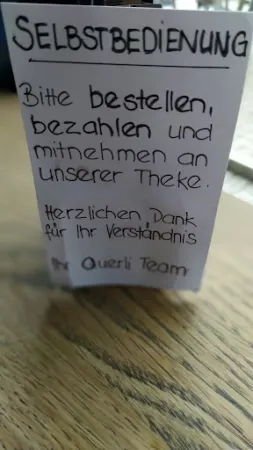 SELBSTBEDIENUNG
Bitte bestellen,
bezahlen und
mitnehmen an
unserer Theke.
Herzlichen Dank
für Ihr Verständnis
Ihr Querli Team